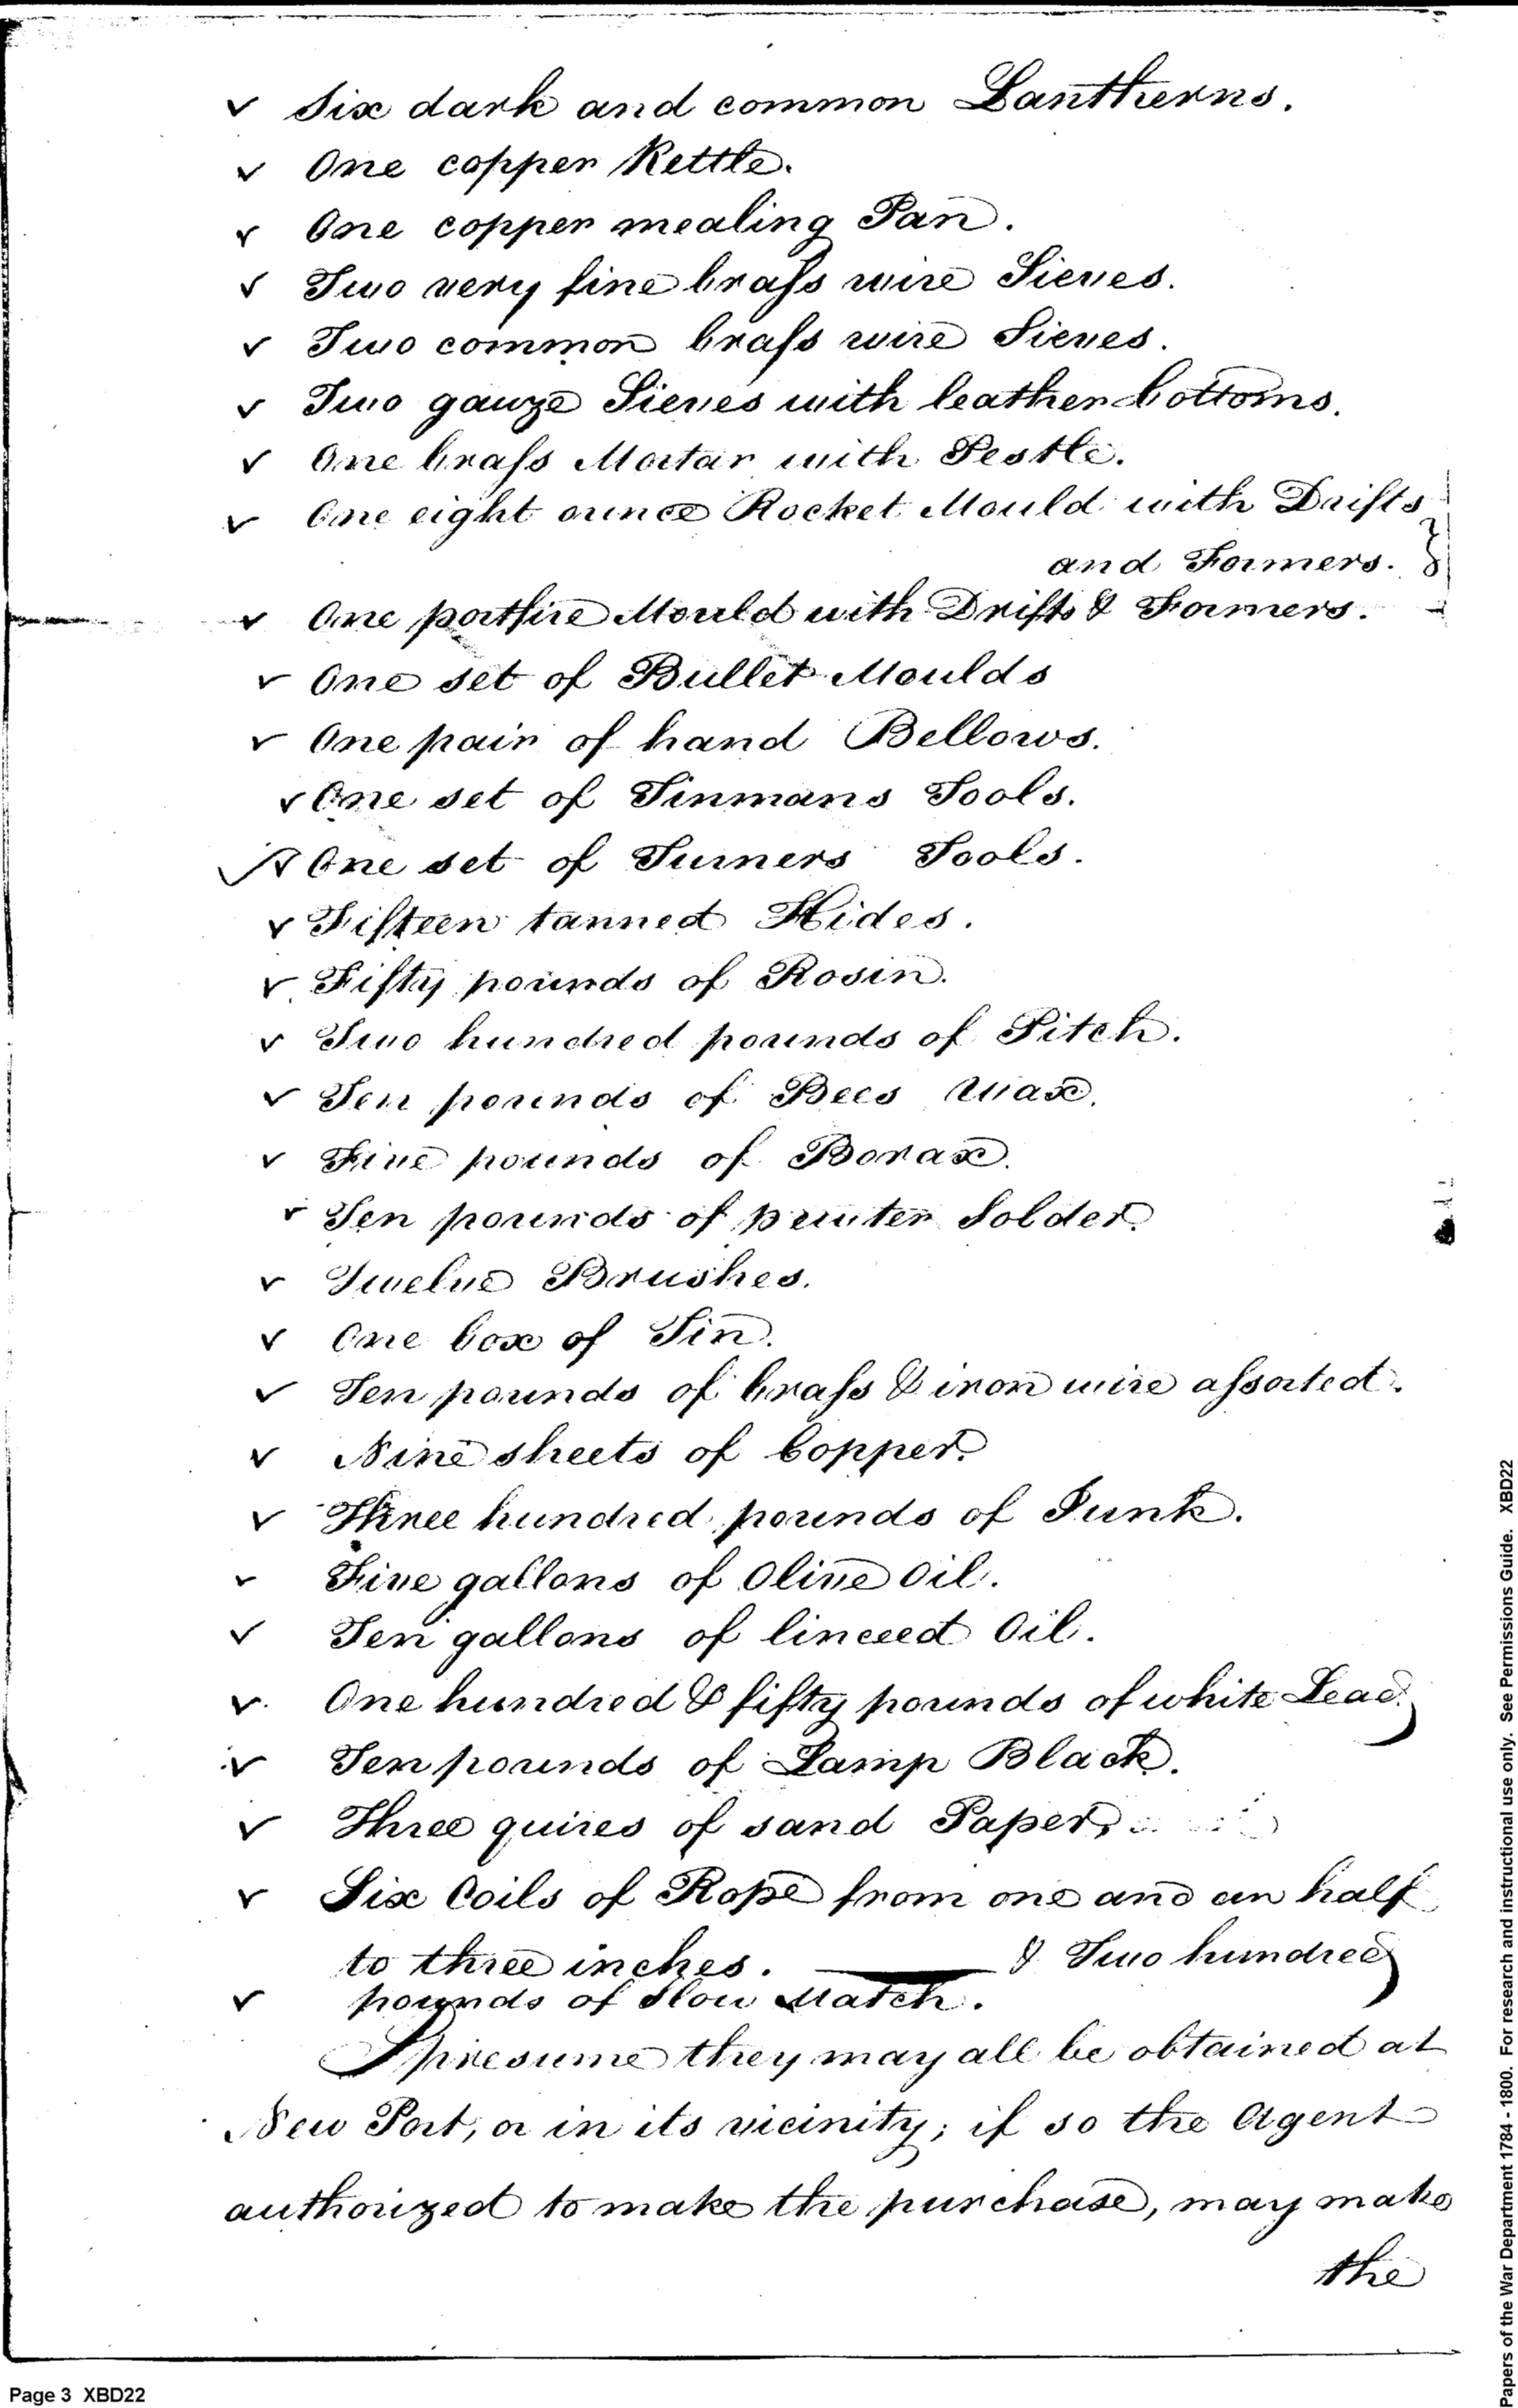 ✓ Six dark and common Lantherns.
✓ One copper Kettle.
✓ One copper mealing Pan.
✓ Two very fine braſs wire Sieves.
✓ Two common braſs wire Sieves.
✓ Two gauze Sieves with leather bottoms.
✓ One braſs Mortar with Pestle.
✓ One eight ounce Rocket Mould with Drifts
and Formers.
✓ One portfire Mould with Drifts & Formers.
✓ One set of Bullet Moulds
✓ One pair of hand Bellows.
✓ One set of Tinmans Tools.
✓ One set of Turners Tools.
✓ Fifteen tanned Hides.
✓ Fifty pounds of Rosin.
✓ Two hundred pounds of Pitch.
✓ Ten pounds of Bees Wax.
✓ Five pounds of Borax.
✓ Ten pounds of pewter Solder.
✓ Twelve Brushes.
✓ One box of Tin.
✓ Ten pounds of braſs & iron wire aſsorted.
✓ Nine sheets of Copper.
✓ Three hundred pounds of Junk.
✓ Five gallons of Olive Oil.
✓ Ten gallons of linceed Oil.
✓ One hundred & fifty pounds of white Lead.
✓ Ten pounds of Lamp Black.
✓ Three quires of sand Paper,
✓ Six Coils of Rope from one and an half
to three inches. & Two hundred
✓ pounds of Slow Match.
I presume they may all be obtained at
New Port, or in its vicinity; if so the Agent
authorized to make the purchase, may make
the
Page 3 XBD22
Papers of the War Department 1784 - 1800. For research and instructional use only. See Permissions Guide. XBD22